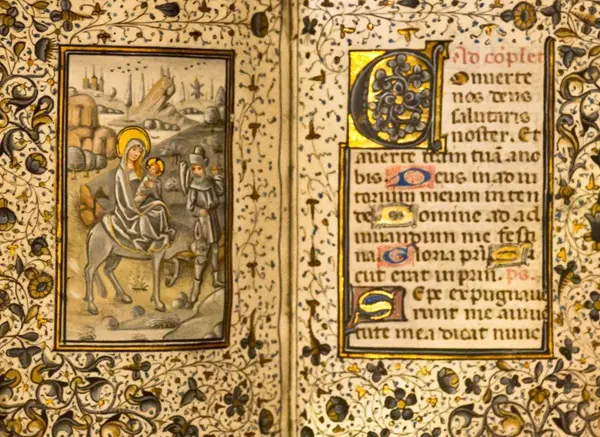 Ad coplet
Onverte
nos deus
salutaris
noster. Et
averte iram tuā a no
bis Deus in ad iu
torium meum in ten
de Domine ad ad
iuvandum me festi
na Gloria pri S
cut erat in prin. ps.
Sepe expugnave
runt me a iuven
tute mea dicat nunc